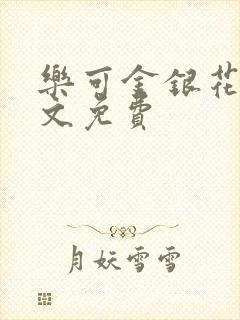 樂可金銀花
文免費
月妖雪雪